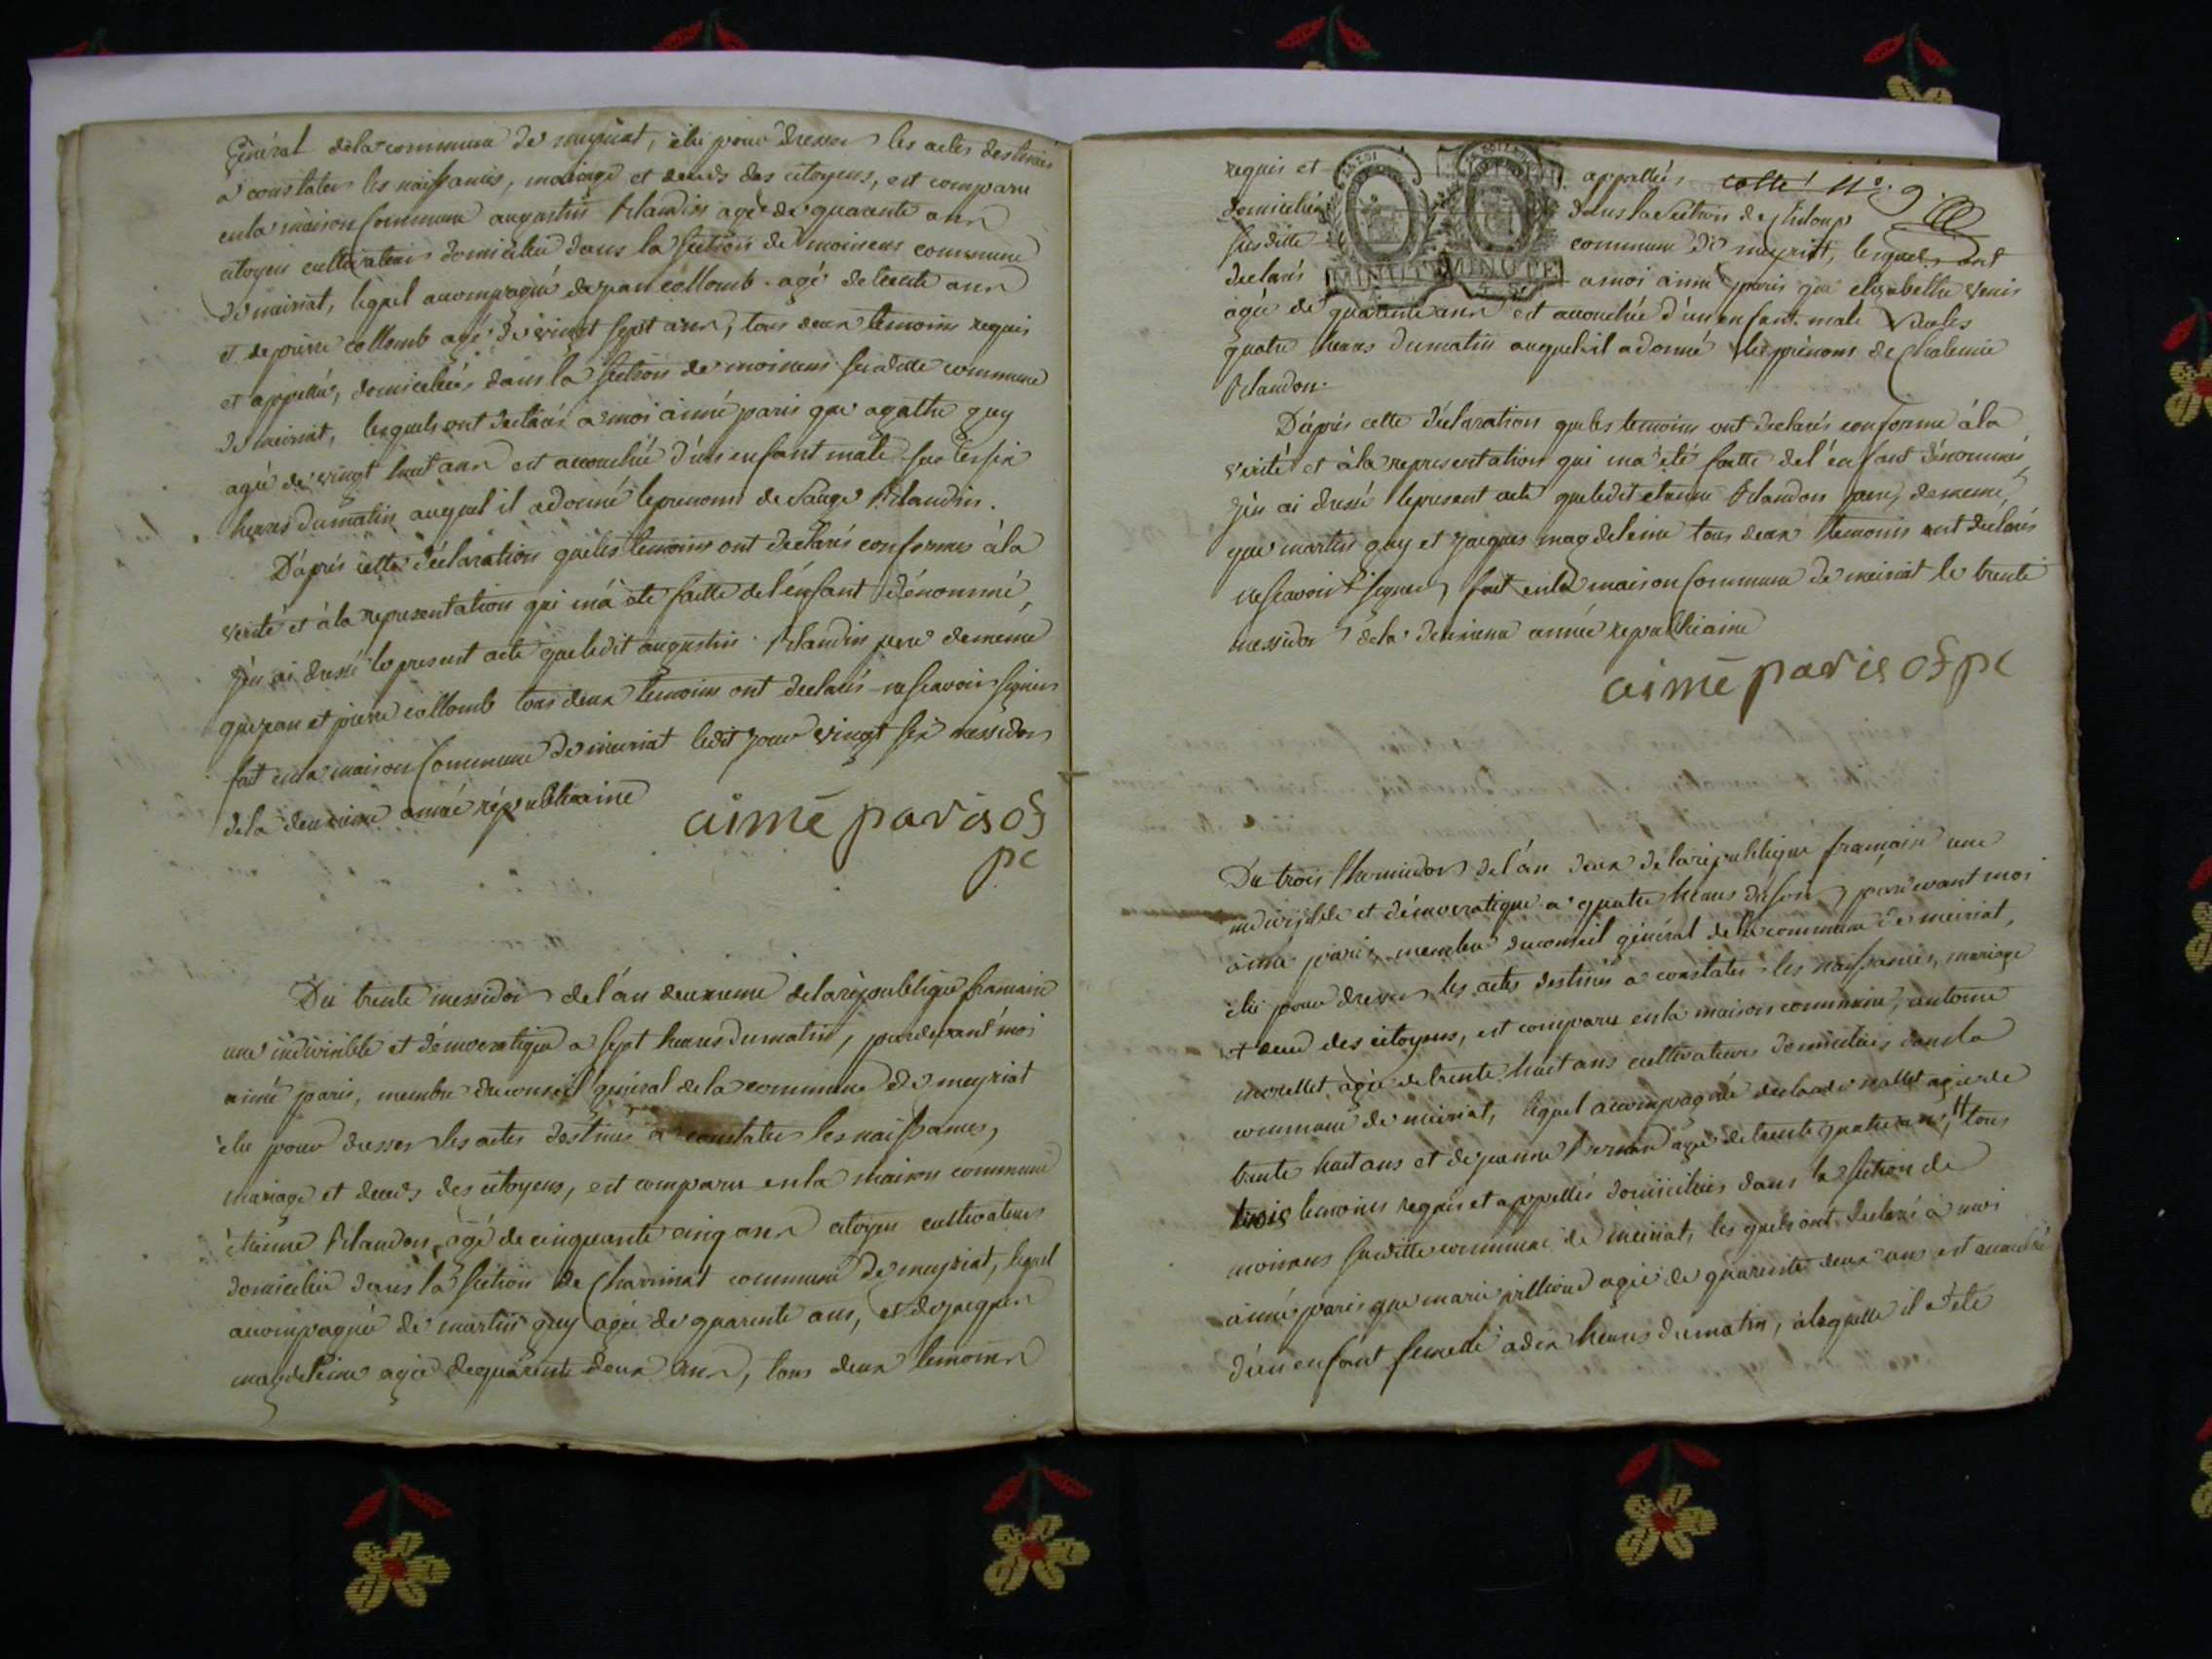 Général de la commune de meyriat, élu pour dresser les actes destinés
a constater les naissances, mariage et decès des citoyens, est comparu
en la maison Commune augustin Blandin agé de quarante ans
citoyen cultivateur domicilié dans la section de moinens commune
de meiriat, lequel accompagné de jean collomb agé de trente ans
et de pierre collomb agé de vingt sept ans, tous deux temoins requis
et appellés, domiciliés dans la section de moinens susditte commune
de meiriat, lesquels ont declarés a moi aimé paris que agathe guy
agée de vingt huit ans est accouchée d'un enfant mâle sur les six
heures du matin auquel il a donné le prenoms de Blandin.
D'aprés cette déclaration que les temoins ont declarés conformes à la
verité et à la representation qui m'a été faitte de l'énfant dénommé,
j'en ai dressé le present acte que ledit augustin Blandin pere de meme
que jean et pierre collomb tous deux temoins ont declarés ne scavoir signer
fait en la maison Commune de meiriat ledit jour vingt six messidor
de la deuxieme année républicaine
aimé paris of
pc
Du trente messidor de l'an deuxieme de la république francaise
une indivisible et démocratique a sept heures du matin, pardevant moi
aimé paris, membre du conseil général de la commune de meyriat
élu pour dresser les actes destinés a constater les naissances,
mariage et decès des citoyens, est comparu en la maison commune
étienne Blandon, agé de cinquante cinq ans citoyen cultivateur
domicilié dans la section de Charinat commune de meyriat, lequel
accompagné de martin guy agé de quarente ans, et de jacques
magdeleine agé de quarente deux ans, tous deux temoins
requis et appellés cotte Nº. 9.
domiciliés dans la Section de
susditte commune de meyriat, lesquels ont
declarés a moi aimé paris que elizabethe
agée de quarante ans est accouchée d'un enfant male
quatre heures du matin auquel il a donné les prénoms de
Blandon.
MINUTE MINUTE
D'aprés cette déclaration que les temoins ont declarés conforme à la
verité et à la representation qui m'a été faitte de l'énfant dénommé,
j'en ai dressé le present acte que ledit etienne Blandon pere, de meme,
que martin guy et jacques magdeleine tous deux temoins ont déclarés
ne scavoir signer, fait en la maison Commune de meiriat le trente
messidor de la deuxieme année republicaine
aimé paris of pc
Du trois thermidor de l'an deux de la république française une
indivisible et démocratique a quatre heures du soir, pardevant moi
aimé paris, membre du conseil général de la commune de meiriat,
élu pour dresser les actes destinés a constater les naissances, mariage
et decés des citoyens, est comparu en la maison commune, antoine
morellet agé de trente huit ans cultivateur domicilié dans la
commune de meiriat, lequel accompagné de nallet agé de
trente huit ans et de jeanne agée de trente quatre ans, tous
trois temoins requis et appellés domiciliés dans la section de
moinens susditte commune de meiriat, les quels ont declaré à moi
aimé paris que marie agée de quarente deux ans est accouchée
d'un enfant femelle a dix heures du matin, à laquelle il a été